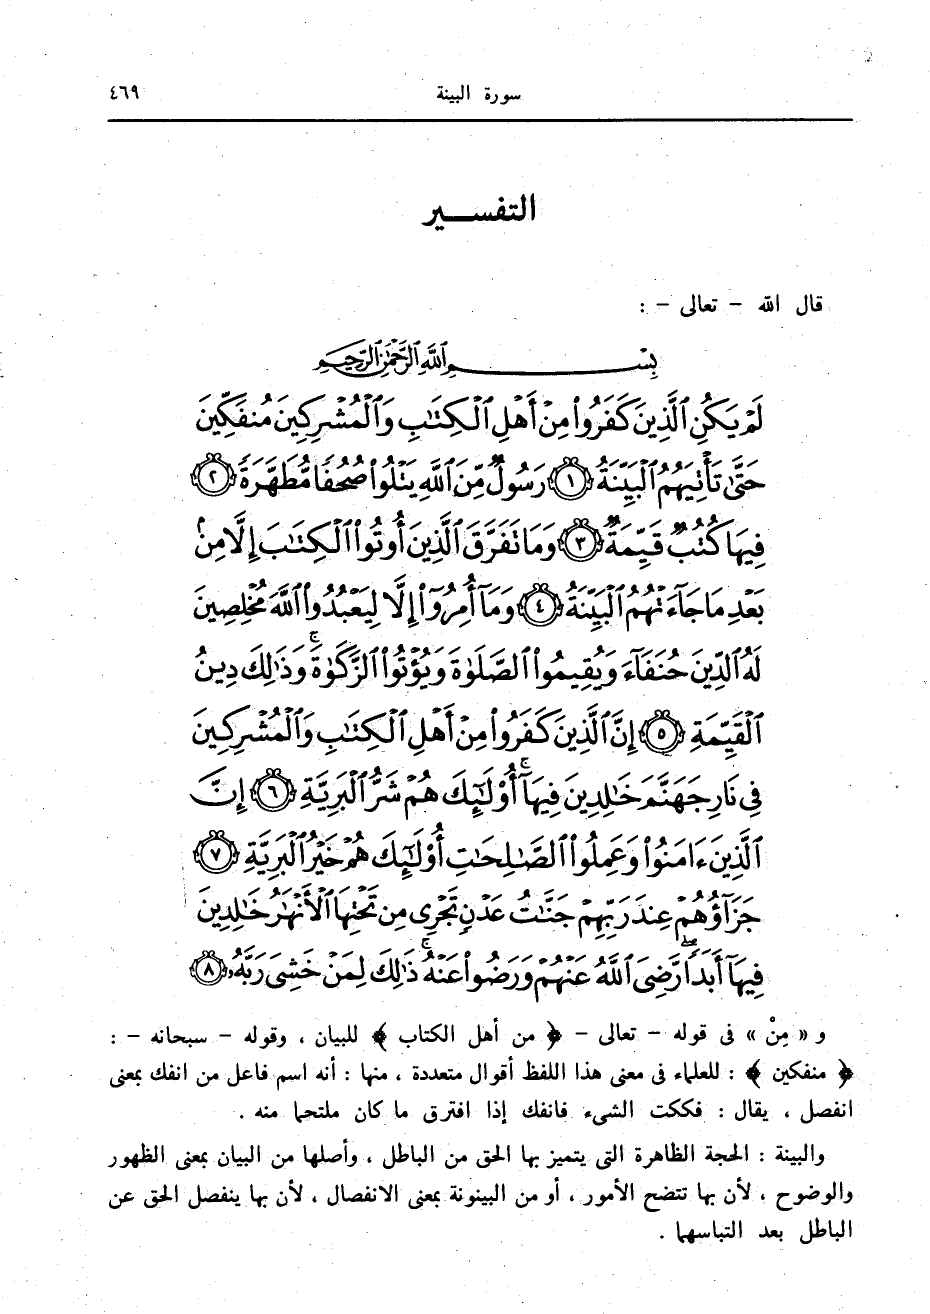 سورة البينة ٤٦٩
التفســير
قال الله – تعالى – :
بِسْــــــمِ ٱللَّهِ ٱلرَّحْمَٰنِ ٱلرَّحِيمِ
لَمْ يَكُنِ ٱلَّذِينَ كَفَرُوا۟ مِنْ أَهْلِ ٱلْكِتَٰبِ وَٱلْمُشْرِكِينَ مُنفَكِّينَ
حَتَّىٰ تَأْتِيَهُمُ ٱلْبَيِّنَةُ ١ رَسُولٌ مِّنَ ٱللَّهِ يَتْلُوا۟ صُحُفًا مُّطَهَّرَةً ٢
فِيهَا كُتُبٌ قَيِّمَةٌ ٣ وَمَا تَفَرَّقَ ٱلَّذِينَ أُوتُوا۟ ٱلْكِتَٰبَ إِلَّا مِنۢ
بَعْدِ مَا جَآءَتْهُمُ ٱلْبَيِّنَةُ ٤ وَمَآ أُمِرُوٓا۟ إِلَّا لِيَعْبُدُوا۟ ٱللَّهَ مُخْلِصِينَ
لَهُ ٱلدِّينَ حُنَفَآءَ وَيُقِيمُوا۟ ٱلصَّلَوٰةَ وَيُؤْتُوا۟ ٱلزَّكَوٰةَ ۚ وَذَٰلِكَ دِينُ
ٱلْقَيِّمَةِ ٥ إِنَّ ٱلَّذِينَ كَفَرُوا۟ مِنْ أَهْلِ ٱلْكِتَٰبِ وَٱلْمُشْرِكِينَ
فِى نَارِ جَهَنَّمَ خَٰلِدِينَ فِيهَآ ۚ أُو۟لَٰٓئِكَ هُمْ شَرُّ ٱلْبَرِيَّةِ ٦ إِنَّ
ٱلَّذِينَ ءَامَنُوا۟ وَعَمِلُوا۟ ٱلصَّٰلِحَٰتِ أُو۟لَٰٓئِكَ هُمْ خَيْرُ ٱلْبَرِيَّةِ ٧
جَزَآؤُهُمْ عِندَ رَبِّهِمْ جَنَّٰتُ عَدْنٍ تَجْرِى مِن تَحْتِهَا ٱلْأَنْهَٰرُ خَٰلِدِينَ
فِيهَآ أَبَدًا ۖ رَّضِىَ ٱللَّهُ عَنْهُمْ وَرَضُوا۟ عَنْهُ ۚ ذَٰلِكَ لِمَنْ خَشِىَ رَبَّهُۥ ٨
و « مِنْ » فى قوله – تعالى – ﴿ من أهل الكتاب ﴾ للبيان ، وقوله – سبحانه – :
﴿ منفكين ﴾ : للعلماء فى معنى هذا اللفظ أقوال متعددة ، منها : أنه اسم فاعل من انفك بمعنى
انفصل ، يقال : فككت الشىء فانفك إذا افترق ما كان ملتحما منه .
والبينة : الحجة الظاهرة التى يتميز بها الحق من الباطل ، وأصلها من البيان بمعنى الظهور
والوضوح ، لأن بها تتضح الأمور ، أو من البينونة بمعنى الانفصال ، لأن بها ينفصل الحق عن
الباطل بعد التباسهما .